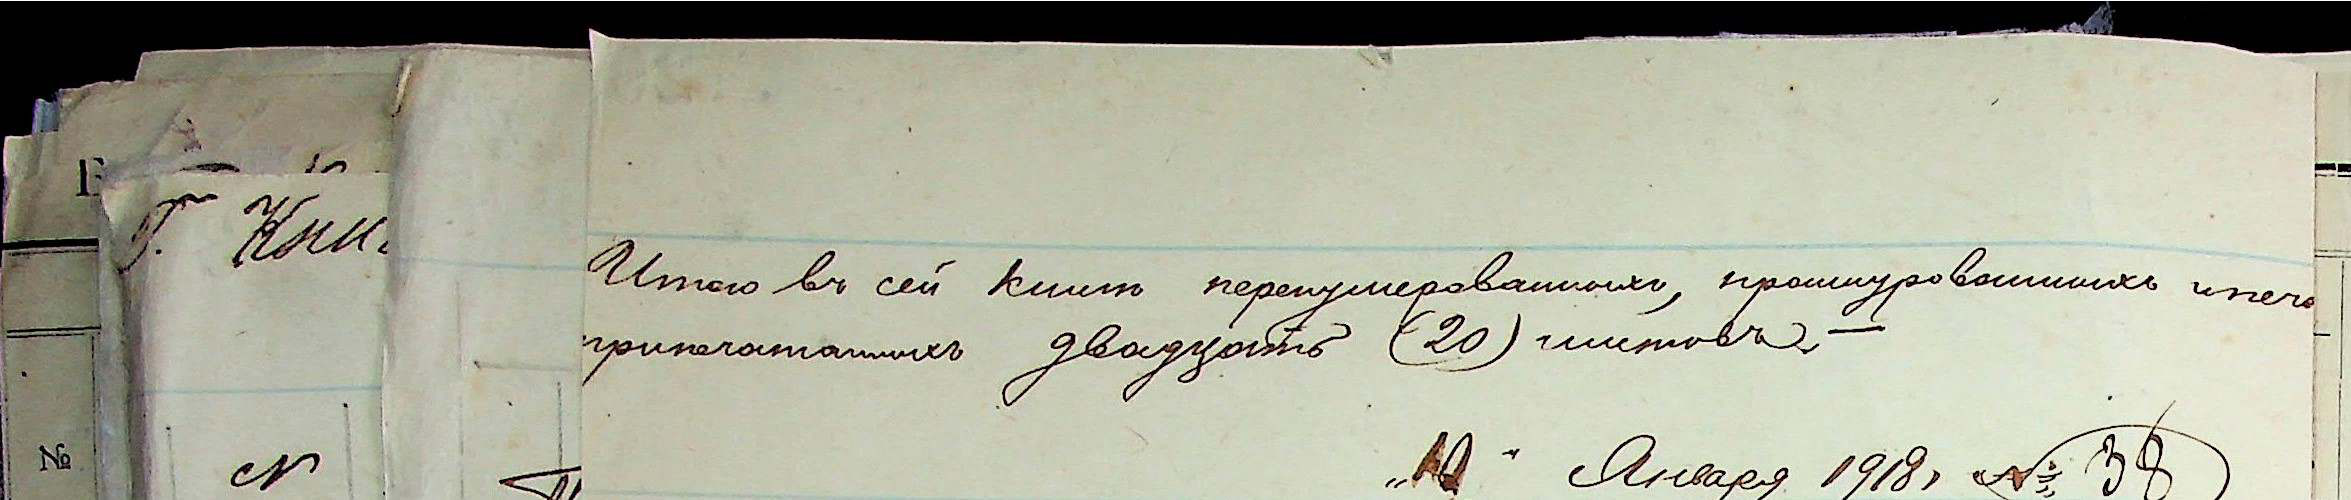 Г. Книг
Итого въ сей книгѣ перенумерованныхъ, прошнурованныхъ и печа
припечатанныхъ двадцать (20) листовъ. —
„10" Января 1918 г. № 38
№